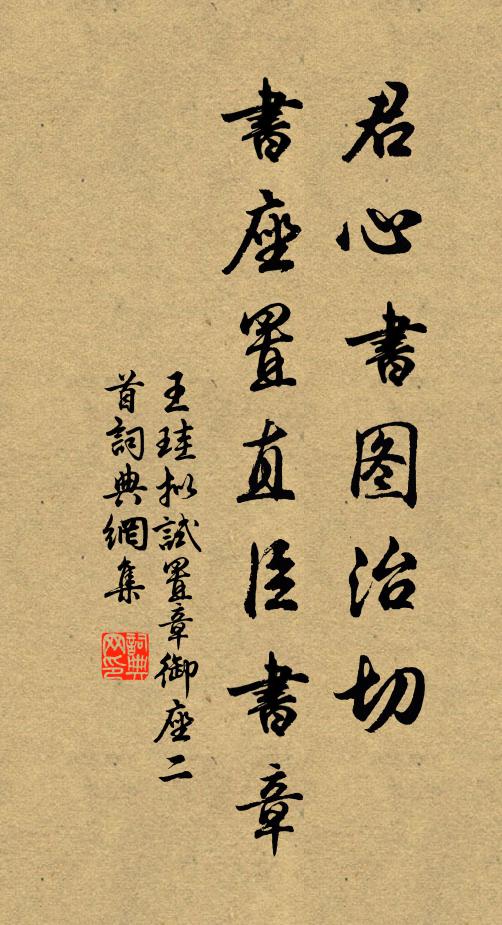 君心書图治切
書座置直臣書章
王珪拟試置章御座二
首詞典網集
詞典
网印